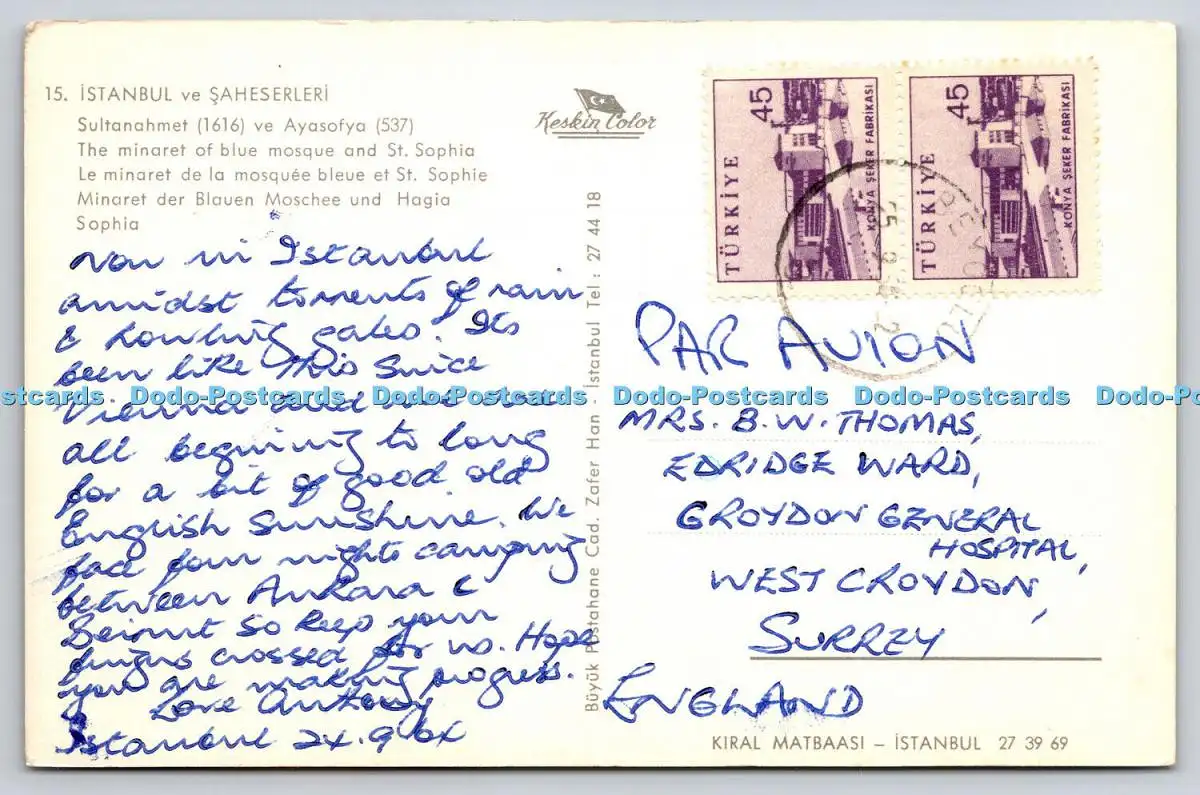 15. İSTANBUL ve ŞAHESERLERİ
Sultanahmet (1616) ve Ayasofya (537)
The minaret of blue mosque and St. Sophia
Le minaret de la mosquée bleue et St. Sophie
Minaret der Blauen Moschee und Hagia
Sophia
Now in Istanbul
amidst torrents of rain
& howling gales. Its
been like this since
Vienna and we are
all beginning to long
for a bit of good old
English sunshine. We
face four nights camping
between Ankara &
Beirut so keep your
fingers crossed for us. Hope
you are making progress.
Love Antony
Istanbul 24.9.64
Keskin Color
Büyük Postahane Cad. Zafer Han - İstanbul Tel : 27 44 18
45
TÜRKİYE
KONYA ŞEKER FABRİKASI
45
TÜRKİYE
KONYA ŞEKER FABRİKASI
BEYOĞLU
PAR AVION
MRS. B. W. THOMAS,
EDRIDGE WARD,
CROYDON GENERAL
HOSPITAL,
WEST CROYDON,
SURREY
ENGLAND
KIRAL MATBAASI – İSTANBUL 27 39 69
Dodo-Postcards Dodo-Postcards Dodo-Postcards Dodo-Postcards